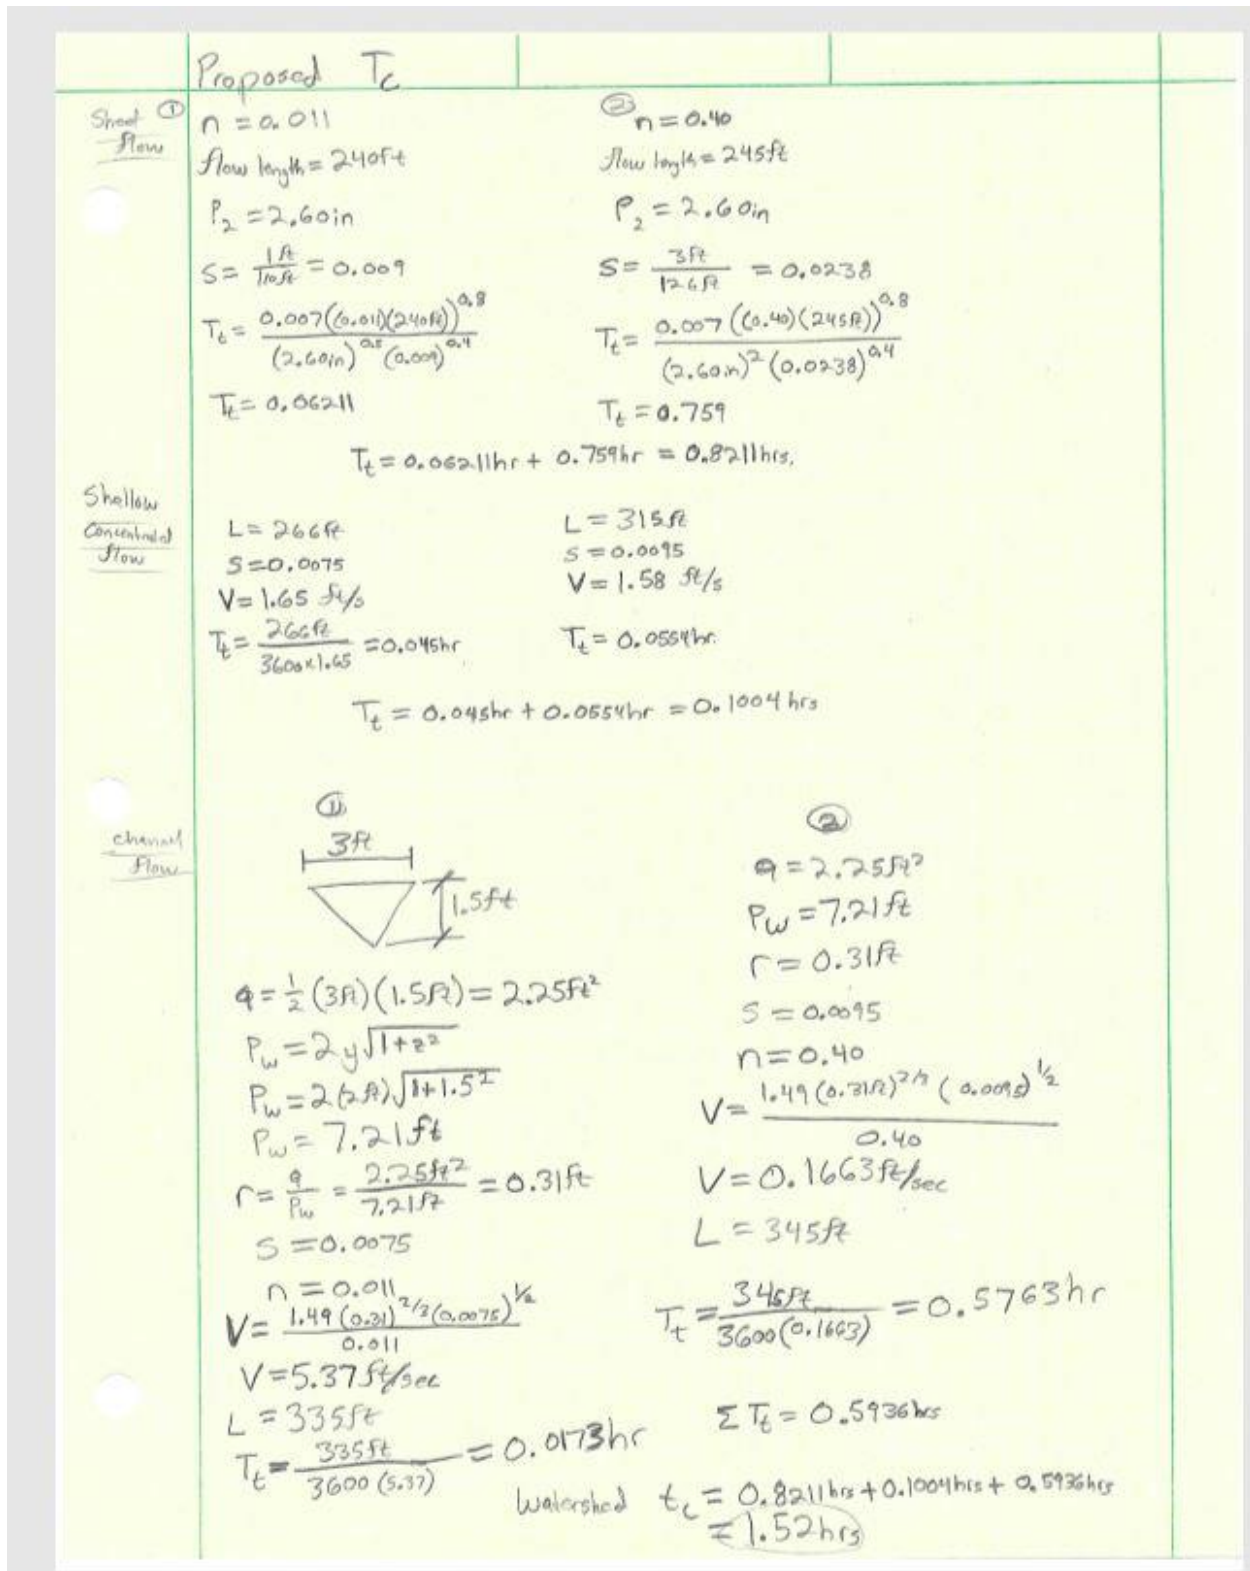 Proposed Tc
Sheet flow
①
n = 0.011
flow length = 240ft
P₂ = 2.60in
S = 1ft/110ft = 0.009
Tt = 0.007((0.011)(240ft))^0.8 / (2.60in)^0.5 (0.009)^0.4
Tt = 0.06211
②
n = 0.40
flow length = 245ft
P₂ = 2.60in
S = 3ft/126ft = 0.0238
Tt = 0.007((0.40)(245ft))^0.8 / (2.60in)^2 (0.0238)^0.4
Tt = 0.759
Tt = 0.06211hr + 0.759hr = 0.8211hrs.
Shallow
Concentrated
flow
L = 266ft
S = 0.0075
V = 1.65 ft/s
Tt = 266ft / 3600×1.65 = 0.045hr
L = 315ft
S = 0.0095
V = 1.58 ft/s
Tt = 0.0554hr.
Tt = 0.045hr + 0.0554hr = 0.1004hrs
channel
flow
①
3ft
1.5ft
a = 1/2 (3ft)(1.5ft) = 2.25ft²
Pw = 2y√1+z²
Pw = 2(2ft)√1+1.5²
Pw = 7.21ft
r = a/Pw = 2.25ft²/7.21ft = 0.31ft
S = 0.0075
n = 0.011
V = 1.49(0.31)^2/3(0.0075)^1/2 / 0.011
V = 5.37ft/sec
L = 335ft
Tt = 335ft / 3600(5.37) = 0.0173hr
②
a = 2.25ft²
Pw = 7.21ft
r = 0.31ft
S = 0.0095
n = 0.40
V = 1.49(0.31ft)^2/3 (0.0095)^1/2 / 0.40
V = 0.1663ft/sec
L = 345ft
Tt = 345ft / 3600(0.1663) = 0.5763hr
Σ Tt = 0.5936hrs
Watershed tc = 0.8211hrs + 0.1004hrs + 0.5936hrs
= 1.52hrs